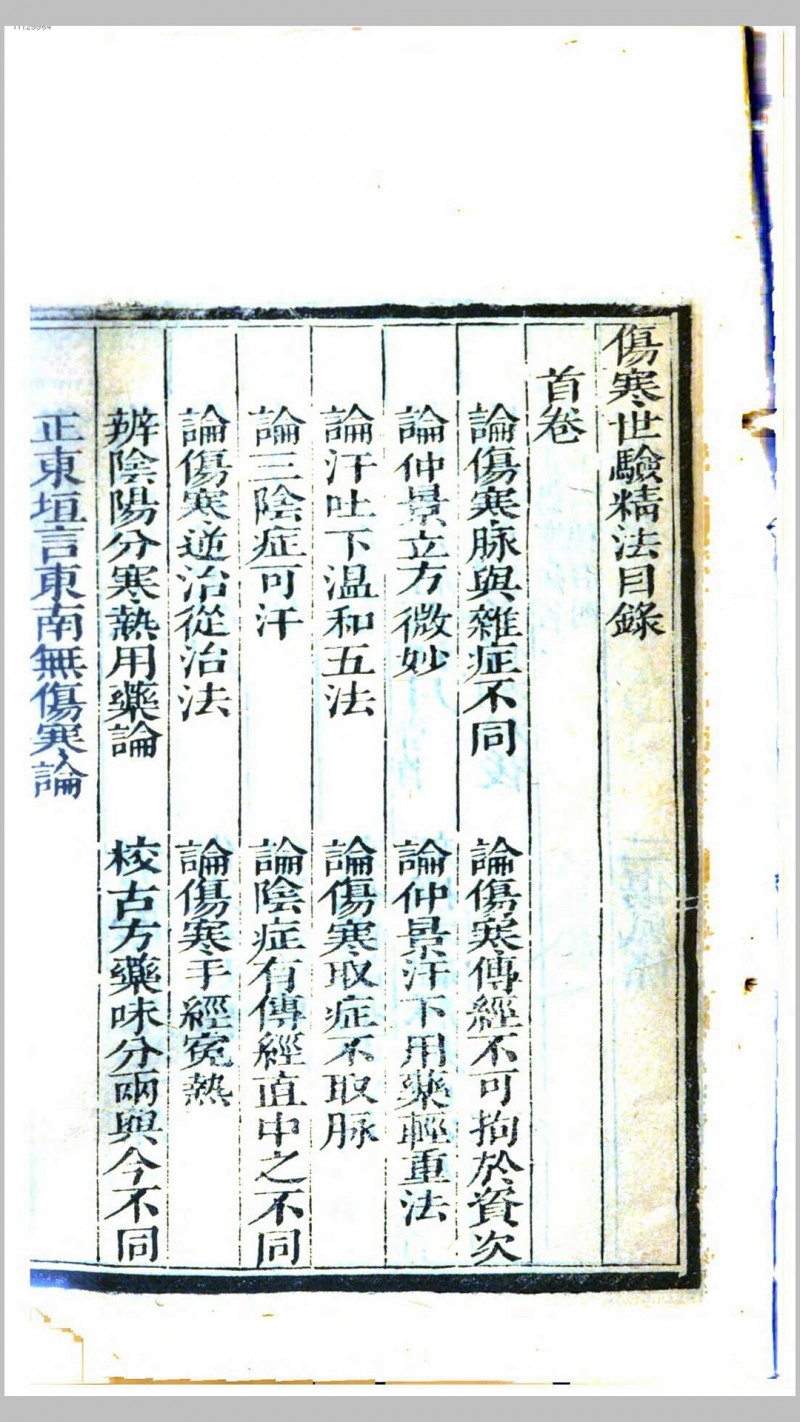 傷寒世驗精法目錄
首卷
論傷寒脉與雜症不同 論傷寒傳經不可拘於資次
論仲景立方微妙 論仲景汗下用藥輕重法
論汗吐下温和五法 論傷寒取症不取脉
論三陰症可汗 論陰症有傳經直中之不同
論傷寒逆治從治法 論傷寒手經寃熱
辨陰陽分寒熱用藥論 校古方藥味分兩與今不同
正東垣言東南無傷寒論